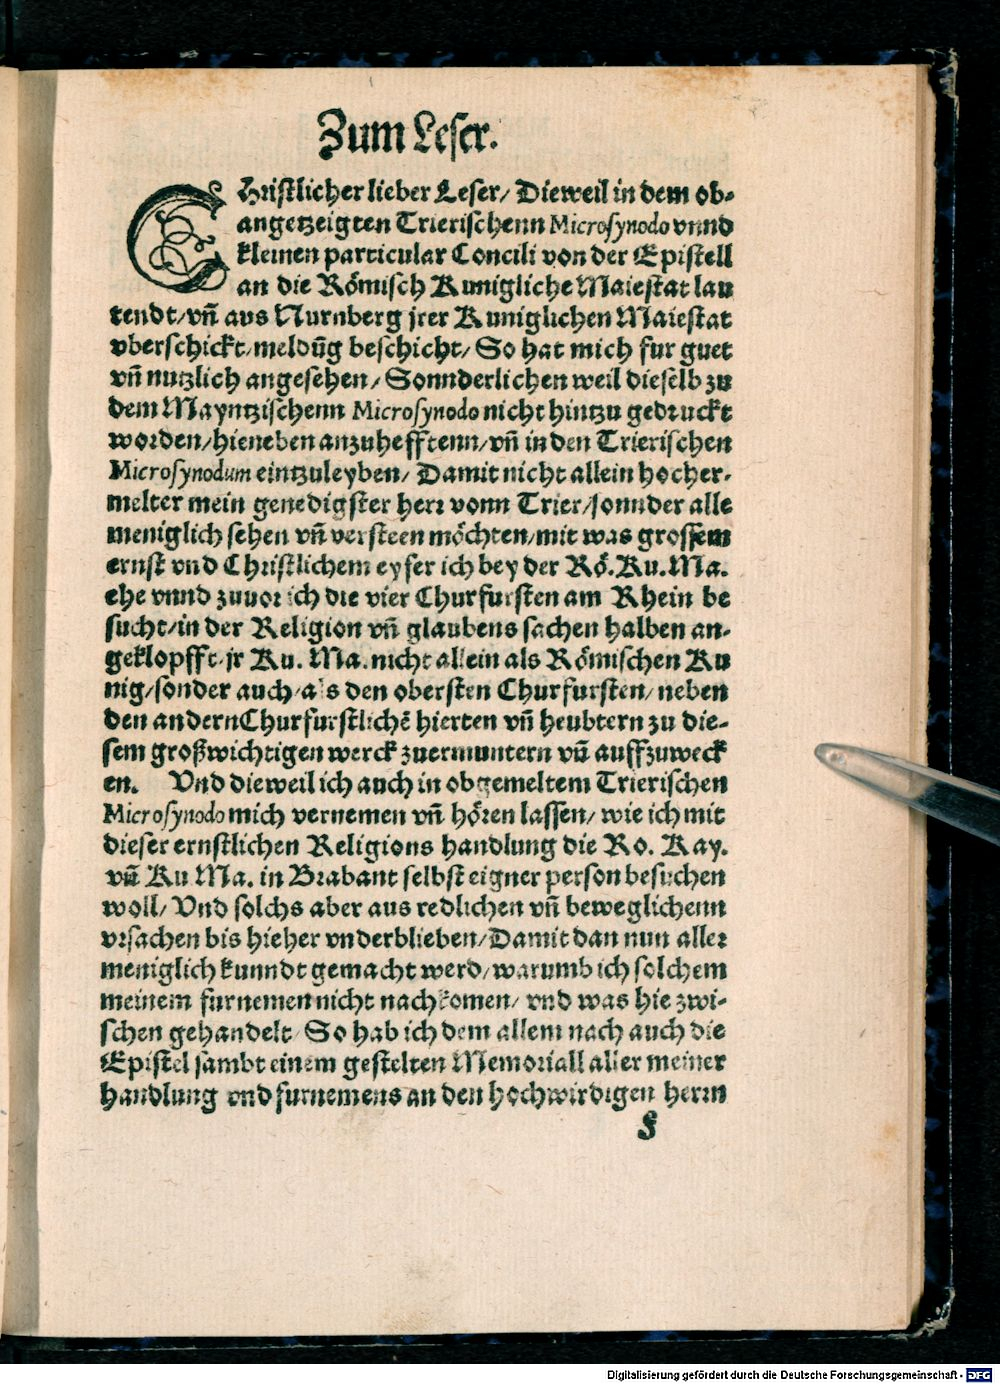 Zum Leser.
CHristlicher lieber Leser/ Dieweil in dem ob-
angetzeigten Trierischenn Microsynodo vnnd
kleinen particular Concili von der Epistell
an die Römisch Kunigliche Maiestat lau
tendt/vñ aus Nurnberg jrer Kuniglichen Maiestat
vberschickt/meldũg beschicht/ So hat mich fur guet
vñ nutzlich angesehen/ Sonnderlichen weil dieselb zu
dem Mayntzischenn Microsynodo nicht hintzu gedruckt
worden/hieneben anzuhefftenn/vñ in den Trierischen
Microsynodum eintzuleyben/ Damit nicht allein hocher-
melter mein genedigster herr vonn Trier/sonnder alle
meniglich sehen vñ versteen möchten/mit was grossem
ernst vnd Christlichem eyfer ich bey der Rö.Ku.Ma.
ehe vnnd zuuor ich die vier Churfursten am Rhein be
sucht/in der Religion vñ glaubens sachen halben an-
geklopfft/jr Ku. Ma. nicht allein als Römischen Ku
nig/sonder auch/als den obersten Churfursten/ neben
den andern Churfurstlichẽ hierten vñ heubtern zu die-
sem großwichtigen werck zuermuntern vñ auffzuweck
en. Vnd dieweil ich auch in obgemeltem Trierischen
Microsynodo mich vernemen vñ hören lassen/ wie ich mit
dieser ernstlichen Religions handlung die Ro. Kay.
vñ Ku Ma. in Brabant selbst eigner person besuchen
woll/ Vnd solchs aber aus redlichen vñ beweglichenn
vrsachen bis hieher vnderblieben/Damit dan nun aller
meniglich kunndt gemacht werd/warumb ich solchem
meinem furnemen nicht nachkomen/ vnd was hie zwi-
schen gehandelt/ So hab ich dem allem nach auch die
Epistel sambt einem gestelten Memoriall aller meiner
handlung vnd furnemens an den hochwirdigen herrn
§
Digitalisierung gefördert durch die Deutsche Forschungsgemeinschaft - DFG